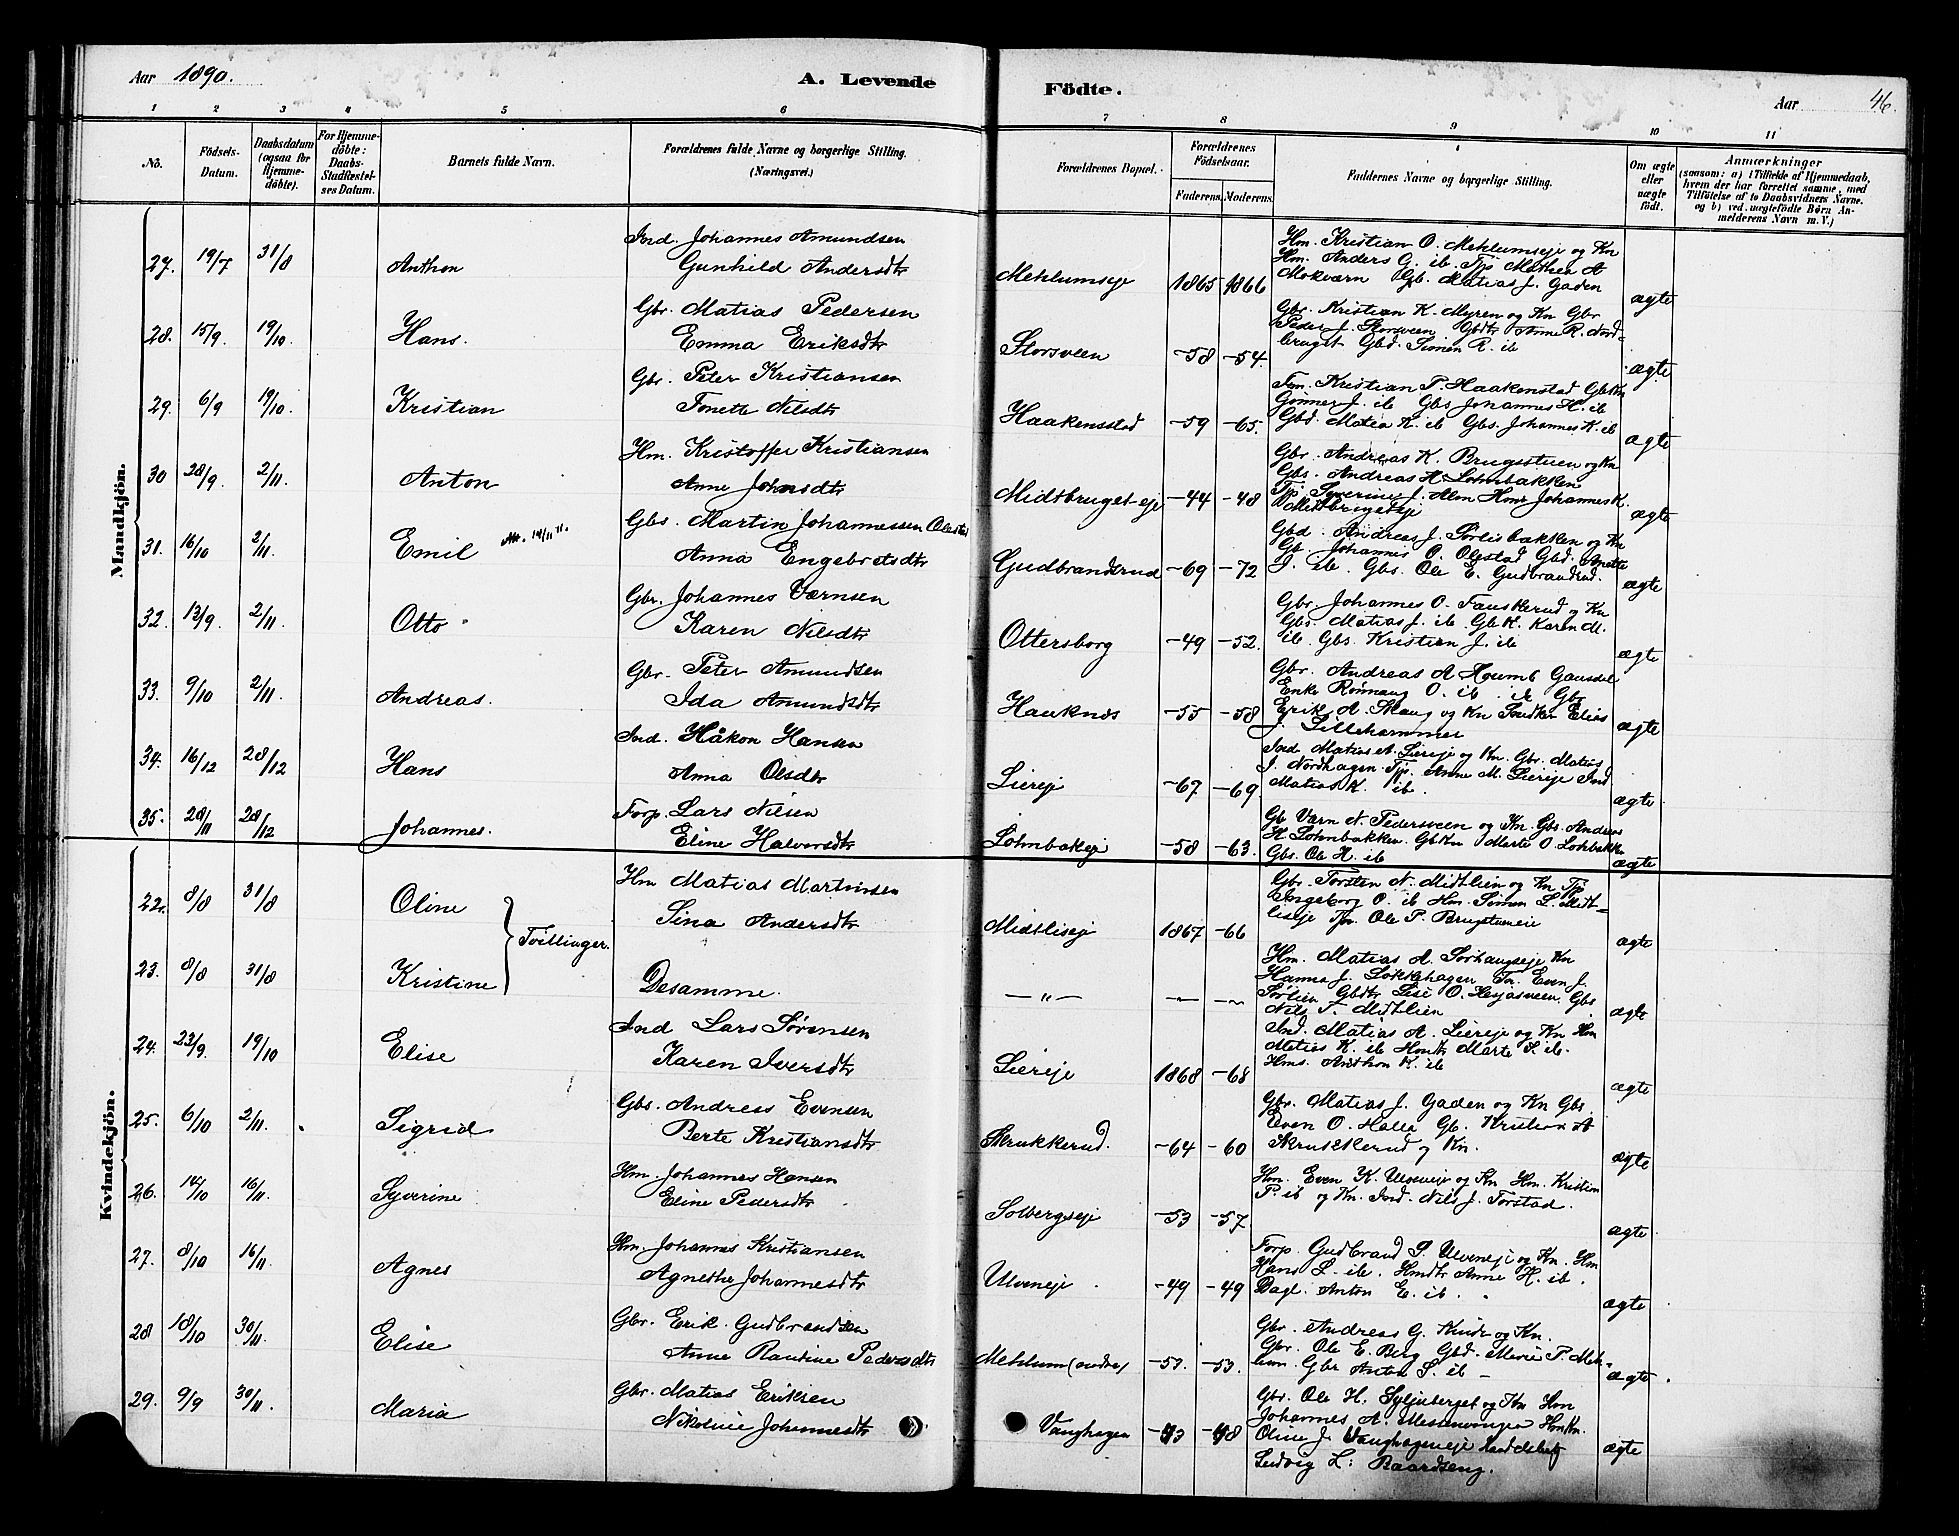 Aar 1890.
A. Levende
Födte.
Aar
46.
1 2 3 4 5 6 7 8 9 10 11
No.
Födsels-
Datum.
Daabsdatum
(ogsaa for
Hjemme-
döbte).
For Hjemme-
döbte:
Daabs-
Stadfæstel-
ses Datum.
Barnets fulde Navn.
Forældrenes fulde Navne og borgerlige Stilling.
(Næringsvei.)
Forældrenes Bopæl.
Forældrenes
Födselsaar.
Faderens. Moderens.
Faddernes Navne og borgerlige Stilling.
Om ægte
eller
uægte
födt.
Anmærkninger
(saasom: a) i Tilfælde af Hjemmedaab,
hvem der har forrettet samme, med
Tilföielse af to Daabsvidners Navne.
og b) ved uægtefödte Börn An-
melderens Navn m. V.)
Mandkjön.
27. 19/7 31/8 Anthon
Ind. Johannes Amundsen
Gunhild Andersdtr
Mehlumseje 1865 1866
Hm. Kristian O. Mehlumseje og Kn
Hm. Anders G. ib Tjp Mathea A
Mokværn Gb. Matias J. Gaden
ægte
28. 15/9 19/10 Hans.
Gbr. Matias Pedersen
Emma Eriksdtr
Storsveen -58 -54.
Gbr. Kristian K. Myren og Kn Gbr
Peder J. Storsveen Gbdtr Anne R. Nord-
bruget Gbd. Simen R. ib
ægte
29. 6/9 19/10. Kristian
Gbr. Peter Kristiansen
Tonette Nilsdtr
Haakensstad -59 -65.
Kristian P. Haakenstad GbKn
Gunner J. ib Gbs Johannes H. ib
Gbd. Matea K. ib Gbs. Johannes K. ib
ægte
30 28/9 2/11. Anton
Hm. Kristoffer Kristiansen
Anne Johnsdtr
Midtbruget-eje -44 -48
Gbr. Andreas K. Brugsstuen og Kn
Gbs. Andreas H. Lohnbakken
Tjp Syverine J. Alm Hm Johannes K.
Midtbrugeteje
ægte
31. 16/10 2/11. Emil
Gbs. Martin Johannessen Olestad
Anna Engebretsdtr
Gudbrandsrud -69 -72
Gbd. Andreas J. Sørlisbakken og Kn
Gb. Johannes O. Olestad Gbd. Anette
J. ib. Gbs. Ole E. Gudbrandsrud.
ægte
32. 13/9. 2/11. Otto
Gbr. Johannes Værnsen
Karen Nilsdtr
Ottersborg -49 -52.
Gbr. Johannes O. Fauskerud og Kn
Gbs. Matias J. ib Gb.K. Karen M.
ib Gbs. Kristian J. ib
ægte
33. 9/10 2/11. Andreas.
Gbr. Peter Amundsen
Ida Amundsdtr
Hauknes -55 -58
Gbr. Andreas A Houmb Gausdal
Enke Rønnaug O. ib Gbr
Erik A. Skaug og Kn Elias
J. Lillehammer
ægte
34. 16/12 28/12 Hans
Ind. Håkon Hansen
Anna Olsdtr
Liereje -67 -69
Ind Matias A. Liereje og Kn. Gbr. Matias
J. Nordhagen Tjp. Anne M. Liereje Ind
Matias K. ib.
ægte
35. 28/11 28/12 Johannes.
Forp. Lars Nilsen
Eline Halvorsdtr
Lohnbakeje -58 -63.
Gb Værn N. Pedersveen og Kn. Gbs. Andreas
H. Lohnbakken. GbKn Marte O. Lohnbakken
Gbs. Ole H. ib
ægte
Kvindekjön.
22. 8/8 31/8 Oline
Tvillinger.
Hm Matias Martinsen
Sina Andersdtr
Midtlieje 1867 -66
Gbr. Torsten N. Midtlien og Kn Tjp
Ingeborg O. ib Hm. Simen S. Midt-
lieje Tjn. Ole P. Brugstueneie
ægte
23. 8/8 31/8 Kristine
Desamme.
— " —
Hm. Matias A. Sørhaugseje Kn
Hanna J. Løkkehagen Tn. Even J.
Sørlien Gbdtr Lise O. Hesjasveen. Gbs
Nils T. Midtlien
ægte
24. 23/9. 19/10 Elise
Ind Lars Sørensen
Karen Iversdtr
Liereje 1868 -68
Ind. Matias A. Liereje og Kn Hm
Matias K. ib Hmdtr Marte S. ib.
Hms. Anthon K. ib
ægte
25. 6/10 2/11. Sigrid
Gbs. Andreas Evensen
Berte Kristiansdtr
Skrukkerud. -64 -60
Gbr. Matias J. Gaden og Kn Gbs.
Even O. Holla Gb. Kristian A
Skrukkerud og Kn.
ægte
26. 14/10 16/11. Syverine
Hm. Johannes Hansen
Eline Pedersdtr
Solbergseje -53 -57.
Hm. Even K. Ulveneje og Kn Hm. Kristian
P. ib og Kn. Ind. Nils J. Forstad.
ægte
27. 8/10 16/11. Agnes
Hm. Johannes Kristiansen
Agnethe Johannesdtr
Ulveneje -49 -49
Forp. Gudbrand S. Ulveneje og Kn. Hm
Hans L. ib. Hmdtr Anne H. ib.
Dagl. Anton E. ib.
ægte
28 18/10 30/11 Elise
Gbr. Erik Gudbrandsen
Anne Rantine Pedersdtr
Mehlum (andre) -57. -53.
Gbr. Andreas G. og Kn.
Gbr. Ole E. Berg Gbd. Marie P. Meh-
lum. Gbr Anton S. ib
ægte
29. 9/9 30/11. Maria
Gbr. Matias Eriksen
Nikoline Johannesdtr
Vanghagen -43 -48
Gbr. Ole H. Syljuberget og Kn Hm
Johannes A. Messenvingen HmKn.
Oline J. Vanghageneje
Ludvig L: Baardseng.
ægte